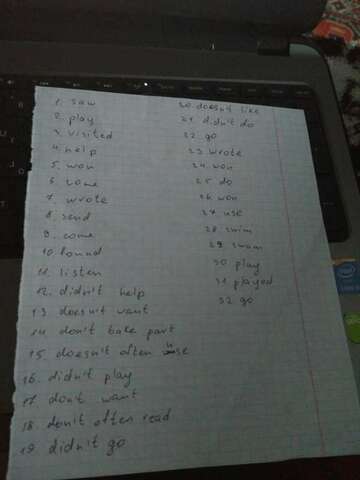 1. saw
2. play
3. visited
4. help
5. won
6. come
7. wrote
8. send
9. come
10. found
11. listen
12. didn't help
13 doesn't want
14 don't take part
15. doesn't often use
16. didn't play
17 don't want
18. don't often read
19 didn't go
20. doesn't like
21. didn't do
22. go
23. wrote
24. won
25. do
26. won
27. use
28. swim
29. swam
30. play
31. played
32. go